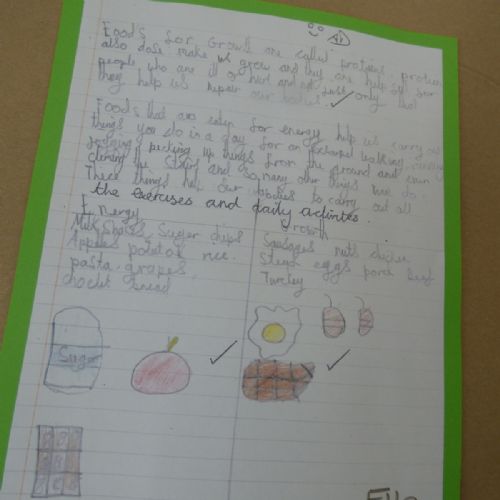 Foods for Growth are called proteins. protien
also dose make us grow and they are help us for
people who are ill or hurt and not just only that
they help us repair our bodies.
Foods that are eaten for energy help us carry out
things you do in a day for an example walking running
jogging picking up things from the ground and even
climing the stairs and so many other things we do
These things help our bodies to carry out all
the exercises and daily activites.
Energy
Growth
Milkshakes Sugar chips
Apples potatoe rice.
pasta. grapes.
choclet bread
Sausages nuts chicken
Steak eggs porc beef
Turkey
Sugar